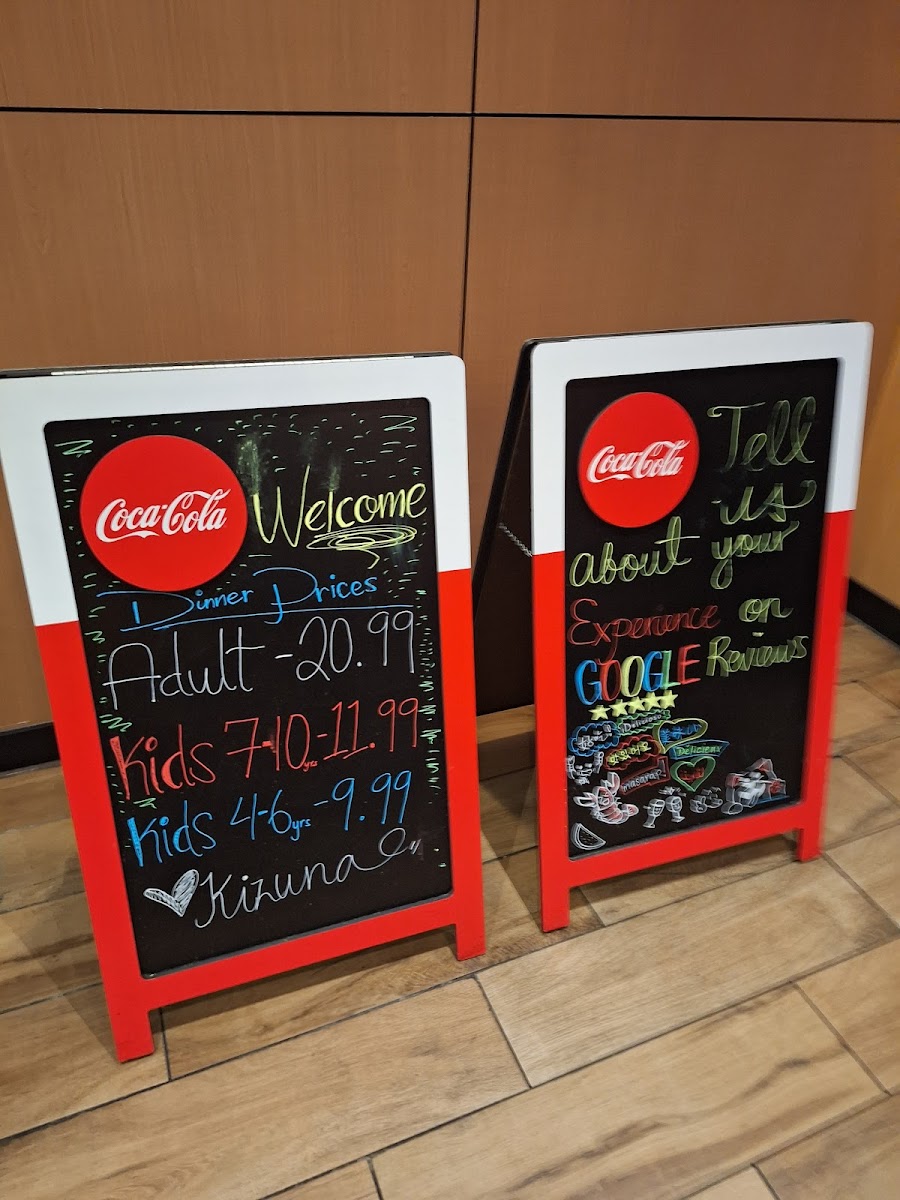 Coca-Cola
Welcome
Dinner Prices
Adult - 20.99
Kids 7-10yrs - 11.99
Kids 4-6yrs - 9.99
Kizuna
Coca-Cola
Tell
us
about your
Experience on
GOOGLE Reviews
Delicioso
맛있어요
Délicieux
masarap